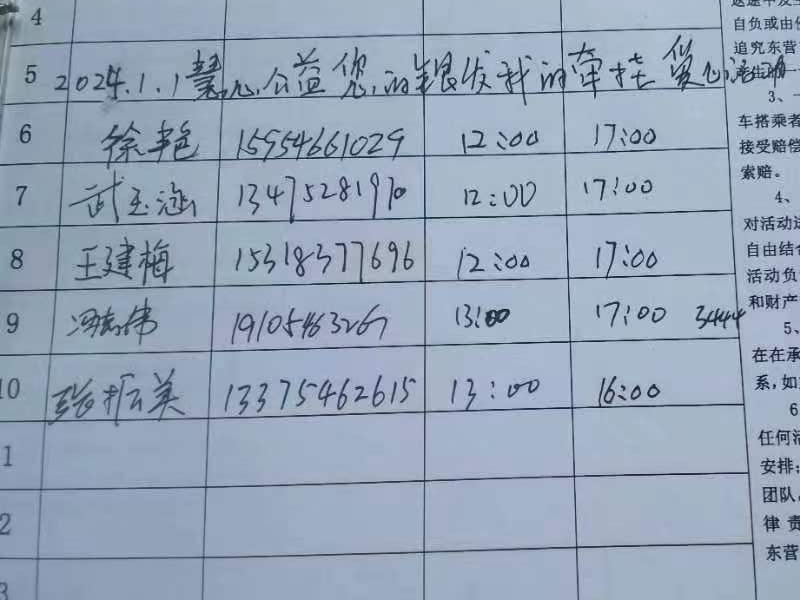 4
5 2024.1.1慧心公益您的银发我的牵挂爱心活动
6 徐艳 15954661029 12:00 17:00
7 武玉涵 13475281970 12:00 17:00
8 王建梅 15318377696 12:00 17:00
9 冯志伟 19105463267 13:00 17:00 3444
10 张振美 13375462615 13:00 16:00
1
2
3
自负或由
追究东营
3、
车搭乘者
接受赔偿
索赔。
4、
对活动过
自由结合
活动负
和财产
5、
在在承
系,如
6
任何活
安排;
团队
律责
东营